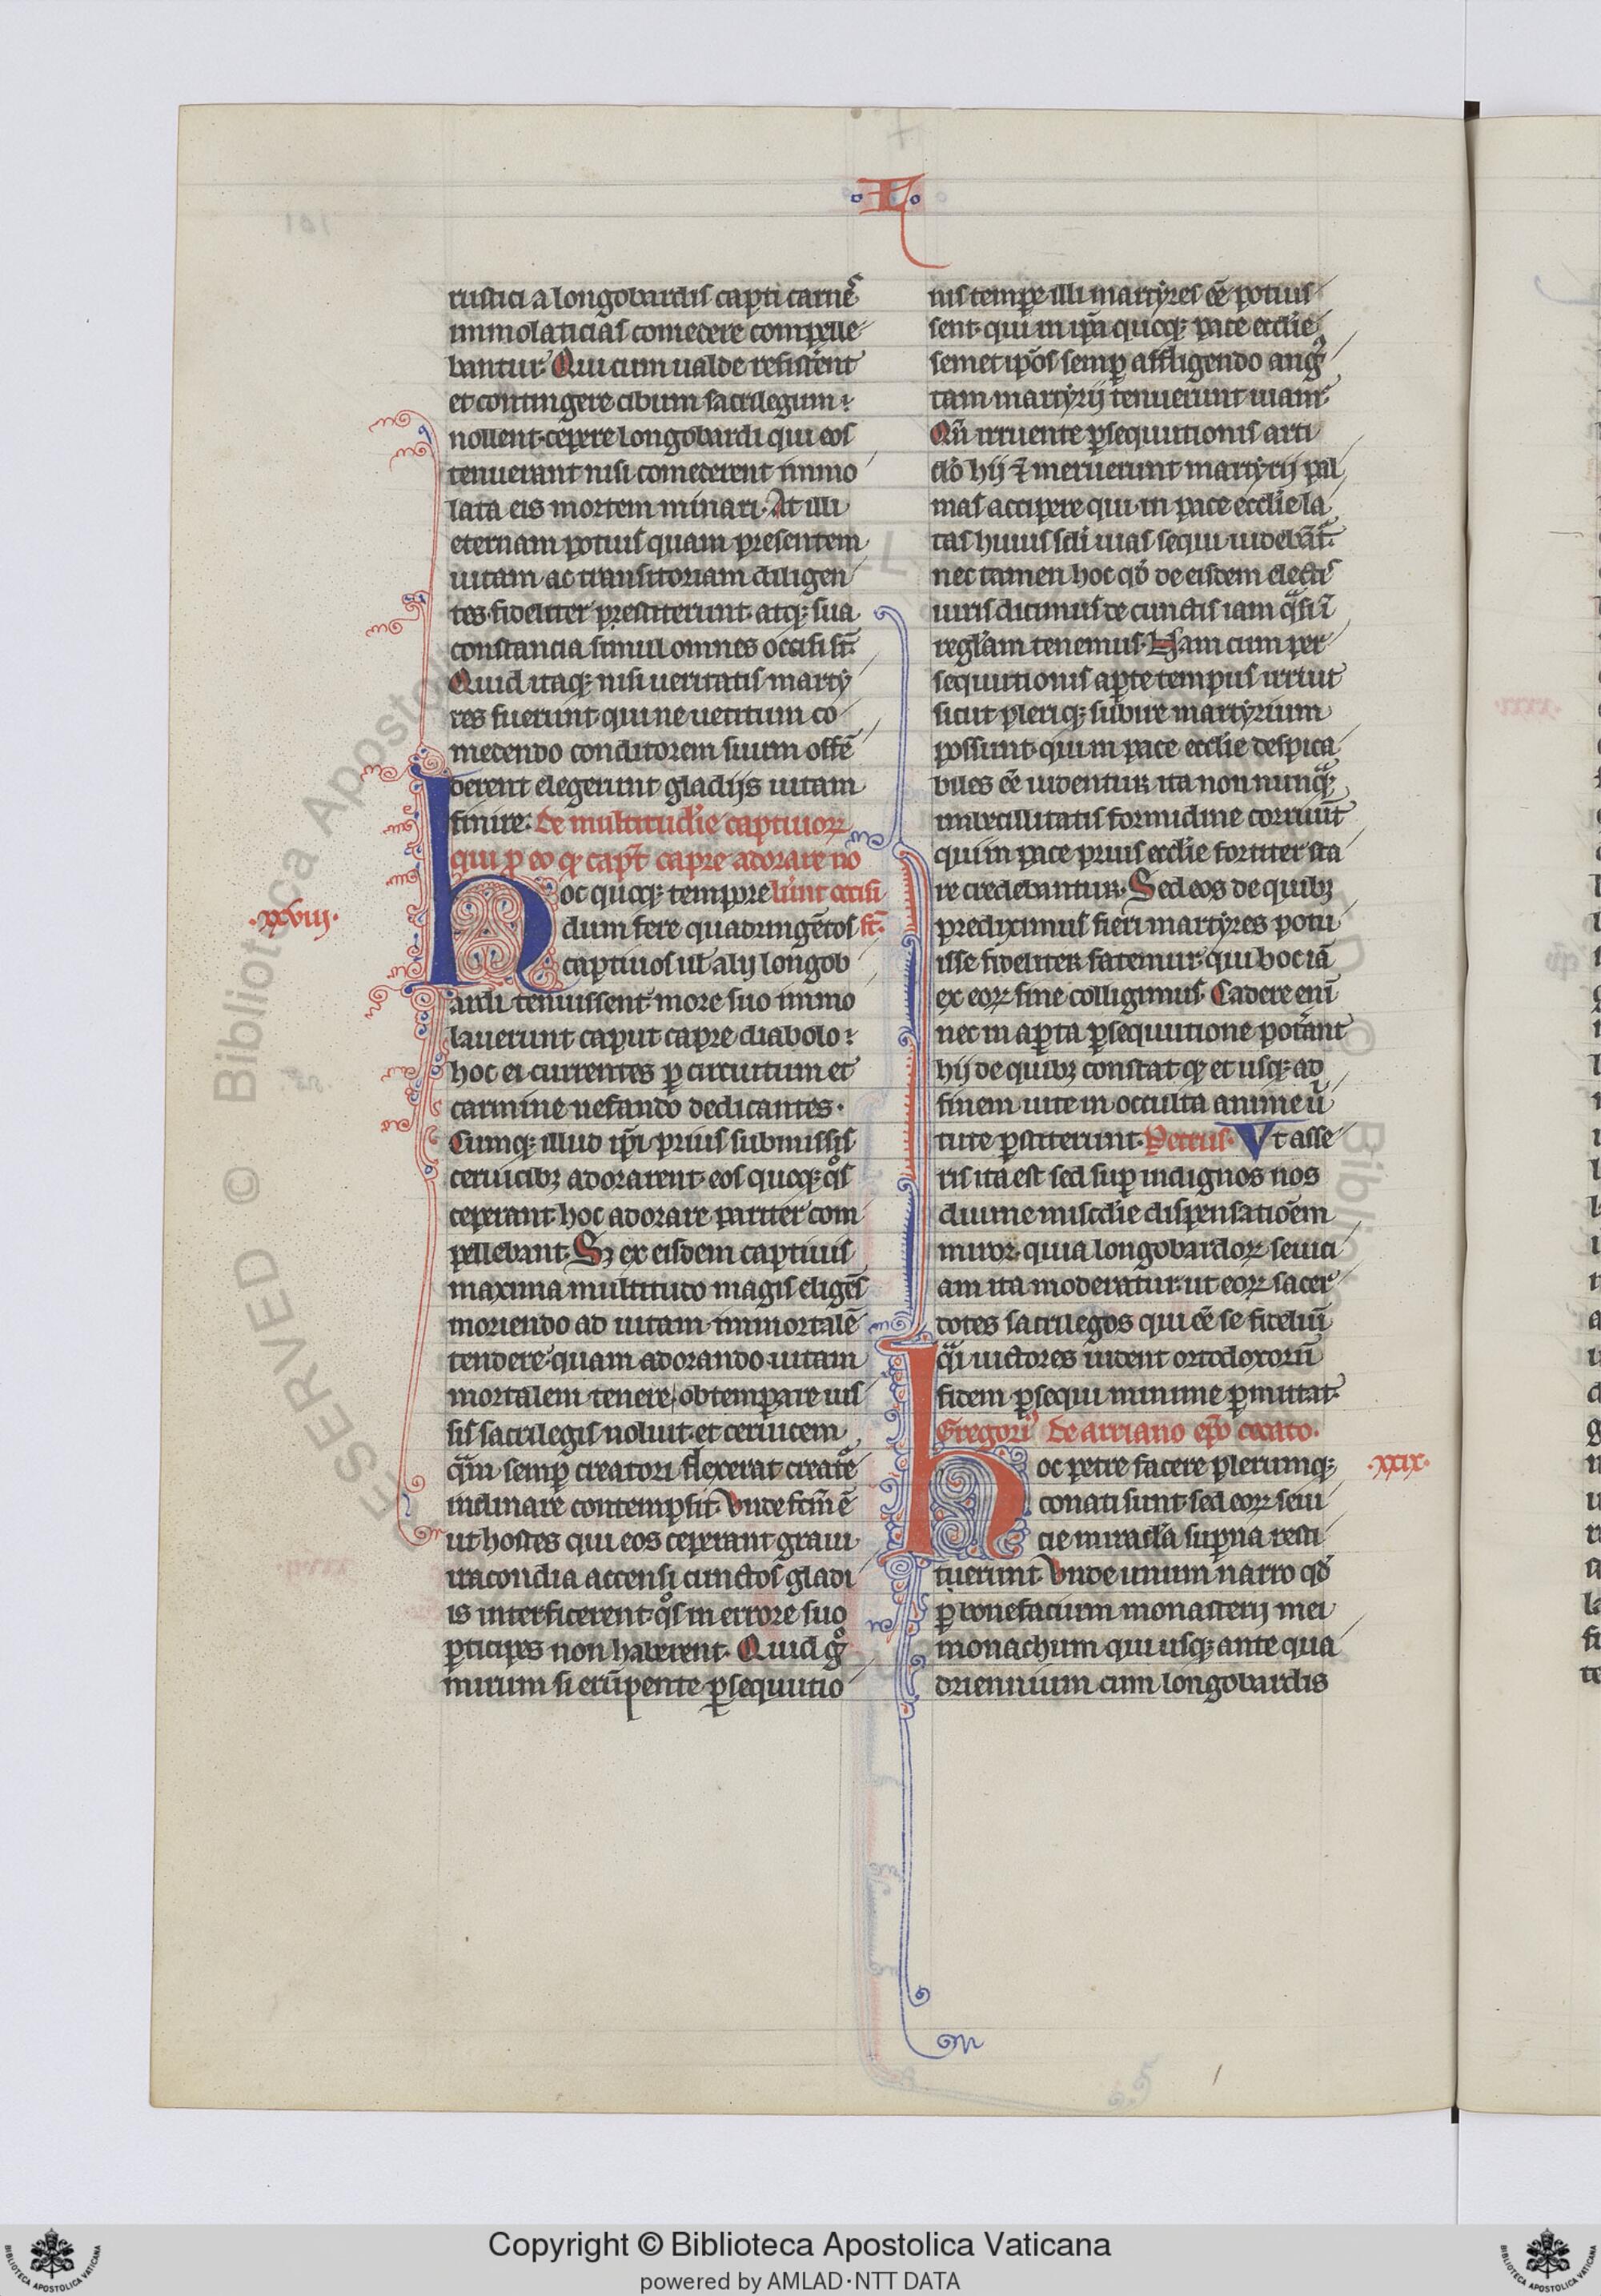 L
rustici a longobardis capti carnes
immolaticias comedere compelle
bantur. Qui cum ualde resist̾ent
et contingere cibum sacrilegum
nollent. cepere longobardi qui eos
tenuerant nisi comederent immo
lata eis mortem minari. At illi
eternam potius quam presentem
uitam ac transitoriam diligen
tes. fideliter perstiterunt. atq; sua
constancia simul omnes occisi st̄.
Quid itaq; nisi ueritatis marty
res fuerunt. qui ne uetitum co
medendo conditorem suum offē
derent elegerunt gladijs uitam
finire. De multitudīe captiuoꝝ
qui ꝓ eo ꝙ capᷓt capre adorare no
luīnt occisi st̄.
.xxviii.
hoc quoq; tempore
dum fere quadringētos
captiuos ul' alij longob
ardi tenuissent. more suo immo
lauerunt caput capre diabolo.
hoc ei currentes ꝑ circuitum et
carmine nefando dedicantes.
Cumq; illud ip̄i prius submissis
ceruicibꝫ adorarent. eos quoq; qͦs
ceperant hoc adorare pariter com
pellebant. Sꝫ ex eisdem captiuis
maxima multitudo magis eligēs
moriendo ad uitam immortalē
tendere. quam adorando uitam
mortalem tenere. obtemꝑare ius
sis sacrilegis noluit. et ceruicem
quā semꝑ creatori flexerat creatē
inclinare contempsit. Unde fcm̄ ē
ut hostes qui eos ceperant graui
iracondia accensi cunctos gladi
is interficerent. qͦs in errore suo
ꝑticipes non haberent. Quid gͦ
mirum si erūpente ꝑsequutio
nis tempe illi martyres eē potuis
sent. qui in ip̄a quoq; pace eccl'ie
semet ip̄os semꝑ affligendo angᷤ
tam martyrij tenuerunt uiam.
Qn̄ irruente ꝑsequutionis arti
cl'o hij ⁊ meruerunt martyrij pal
mas accipere qui in pace eccl'ie la
tas huius sc̄li uias sequi uidebāt̾.
nec tamen hoc qd̄ de eisdem electis
uiris dicimus de cunctis iam qᷓsi ī
regl'am tenemus. Nam cum per
sequutionis aꝑte tempus irruit
sicut pleriq; subire martyrium
possunt. qui in pace eccl'ie despica
biles eē uidentur. ita non nunqᷓ;
imbecillitatis formidine corruūt
qui in pace prius eccl'ie fortiter sta
re credebantur. Sed eos de quibꝫ
prediximus fieri martyres potu
isse fideliter fatemur. qui hoc iā
ex eoꝝ fine colligimus. Cadere enī
nec in aꝑta ꝑsequutione pot̾ant
hij de quibꝫ constat ꝙ et usq; ad
finem uite in occulta animi uͥ
tute ꝑstiterunt. Petrus. Vt asse
ris ita est. sed suꝑ indignos nos
diuine mīscdīe dispensatiōem
miror. quia longobardoꝝ seuici
am ita moderatur. ut eoꝝ sacer
dotes sacrilegos qui eē se fideliū
qᷓi uictores uident. ortodoxorū
fidem ꝑsequi minime ꝑmittat.
Gregoriꝰ De arriano ep̄o cecato.
.xxix.
hoc petre facere plerumq;
conati sunt. sed eoꝝ seui
cie miracl'a suꝑna resti
tuerunt. Unde unum narro qd̄
ꝑ bonefacium monasterij mei
monachum qui usq; ante qua
driennium cum longobardis
Copyright © Biblioteca Apostolica Vaticana
powered by AMLAD·NTT DATA